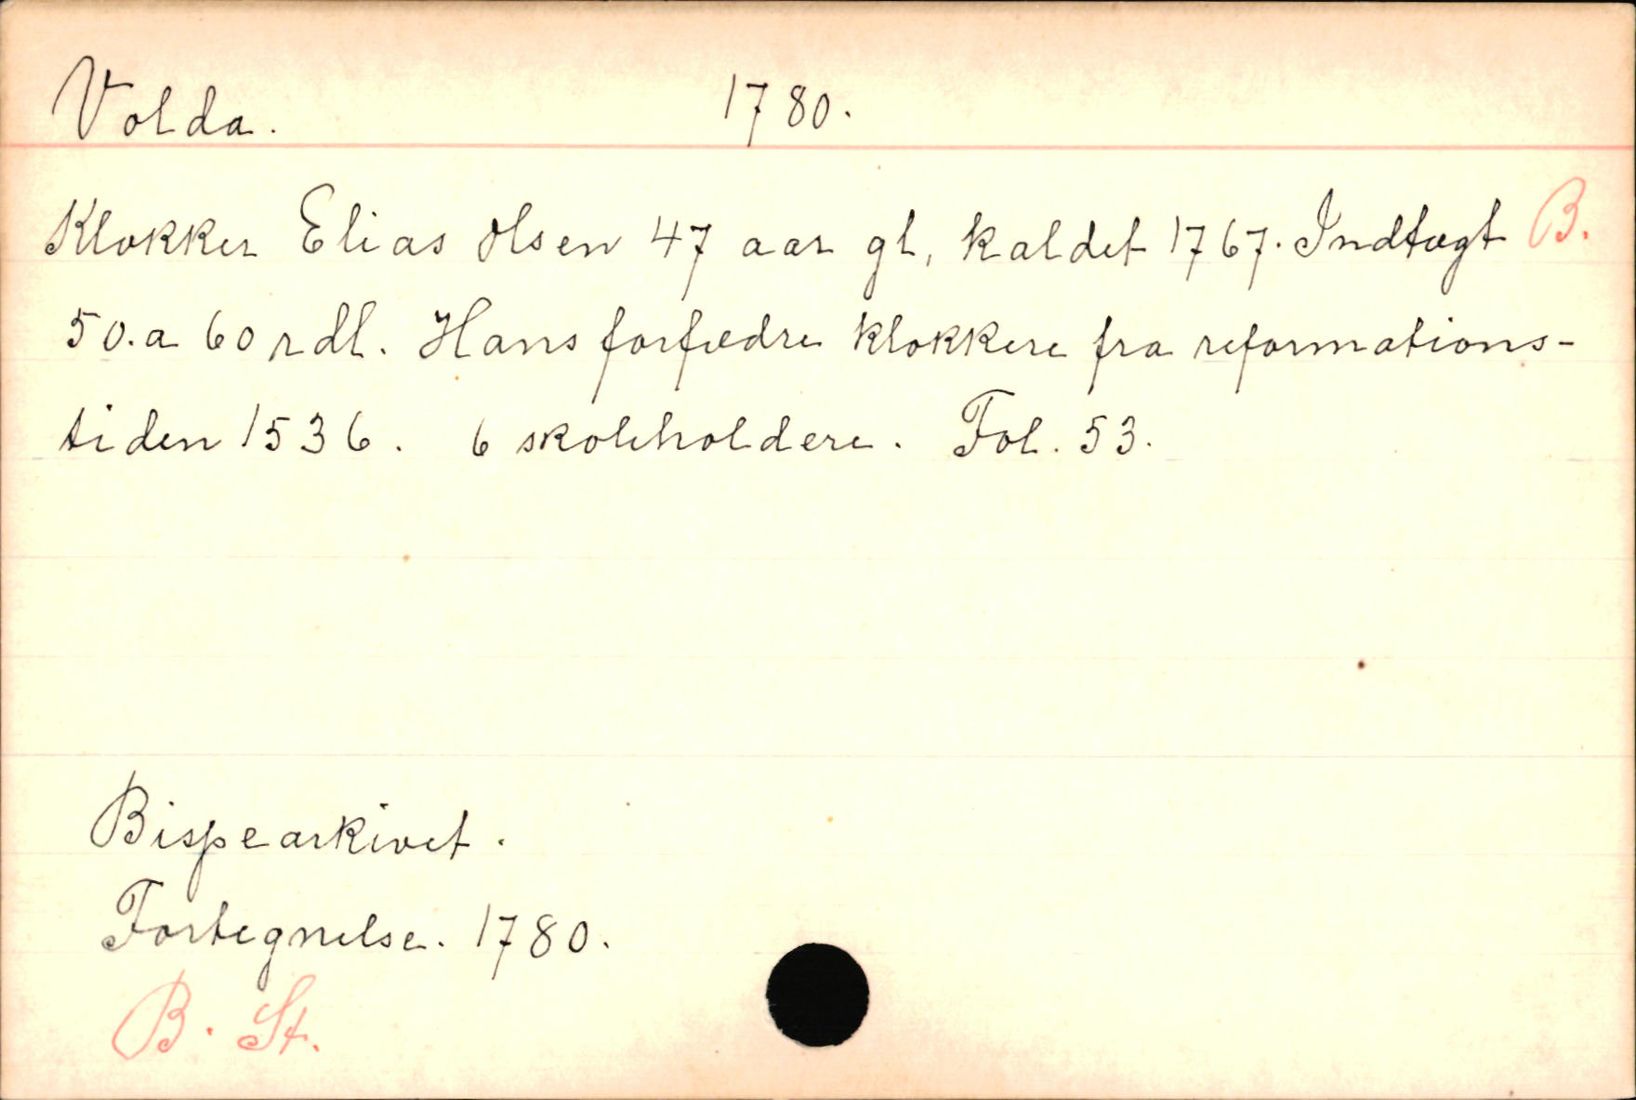 Volda. 1780.
Klokker Elias Olsen 47 aar gl, kaldet 1767. Indtægt B.
50.a 60 rdl. Hans forfædre klokkere fra reformations-
tiden 1536. 6 skoleholdere. Fol. 53.
Bispearkivet.
Fortegnelse. 1780.
B. St.